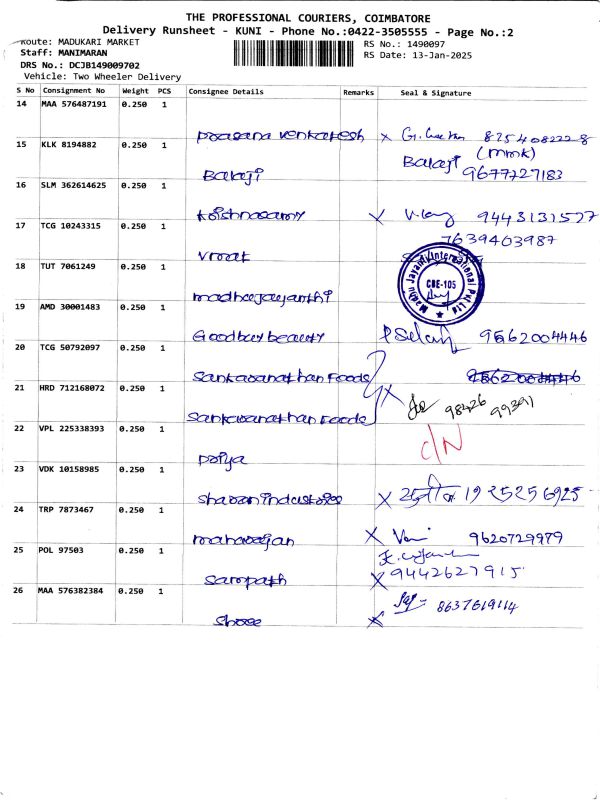 THE PROFESSIONAL COURIERS, COIMBATORE
Delivery Runsheet - KUNI - Phone No.:0422-3505555 - Page No.:2
Route: MADUKARI MARKET
RS No.: 1490097
Staff: MANIMARAN
RS Date: 13-Jan-2025
DRS No.: DCJB149009702
Vehicle: Two Wheeler Delivery
S No Consignment No Weight PCS Consignee Details Remarks Seal & Signature
14 MAA 576487191 0.250 1
prasana venkatesh x 8254082228
15 KLK 8194882 0.250 1
(mmk)
Balaji Balaji 9677727183
16 SLM 362614625 0.250 1
krishnasamy x 9443131527
17 TCG 10243315 0.250 1
7639403987
vmat
18 TUT 7061249 0.250 1
Madhu Jayanthi International Pvt Ltd
CBE-105
madhujayanthi
19 AMD 30001483 0.250 1
Goodbuybeauty P Selan 9562004446
20 TCG 50792097 0.250 1
Sankaranathan Foods
21 HRD 712168072 0.250 1
x 98426 99391
Sankaranathan Foods
22 VPL 225338393 0.250 1
C/N
priya
23 VDK 10158985 0.250 1
sharanindustries x 1925256925
24 TRP 7873467 0.250 1
maharajan x 9620729979
25 POL 97503 0.250 1
sampath x 9442627915
26 MAA 576382384 0.250 1
8637619114
shree x